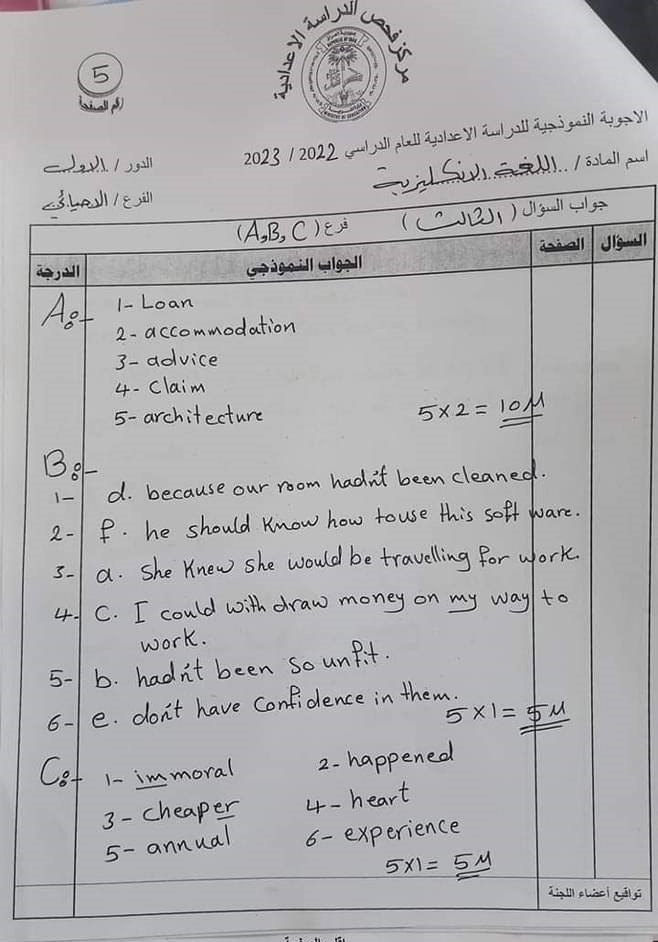 مركز فحص الدراسة الاعدادية
5
رقم الصفحة
الاجوبة النموذجية للدراسة الاعدادية للعام الدراسي 2022 / 2023
الدور / الاول
اسم المادة / اللغة الانكليزية
الفرع / الاحيائي
جواب السؤال ( الثالث ) فرع ( A,B,C )
السؤال الصفحة الجواب النموذجي الدرجة
A:-
1- Loan
2- accommodation
3- advice
4- Claim
5- architecture
5×2 = 10M
B:-
1- d. because our room hadn't been cleaned.
2- f. he should know how touse this soft ware.
3- a. she knew she would be travelling for work.
4- C. I could with draw money on my way to
work.
5- b. hadn't been so unfit.
6- e. don't have confidence in them.
5×1= 5M
C:- 1- immoral 2- happened
3- cheaper 4- heart
5- annual 6- experience
5×1= 5M
تواقيع أعضاء اللجنة